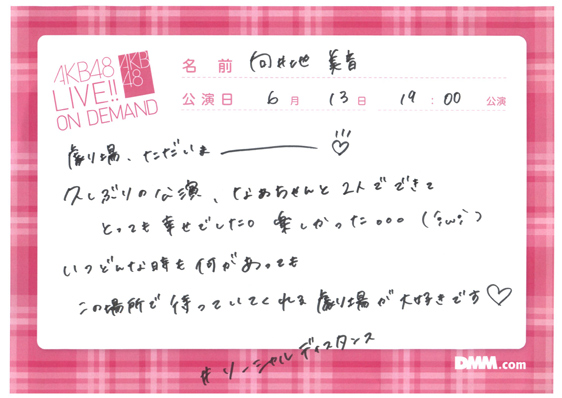 AKB48
LIVE!!
ON DEMAND
AKB
48
名前 向井地 美音
公演日 6月 13日 19:00 公演
劇場、ただいまー♡
久しぶりの公演、なぁちゃんと2人でできて
とっても幸せでした。楽しかった。。。(;ω;)
いつどんな時も何があっても
この場所で待っていてくれる劇場が大好きです♡
#ソーシャルディスタンス
DMM.com